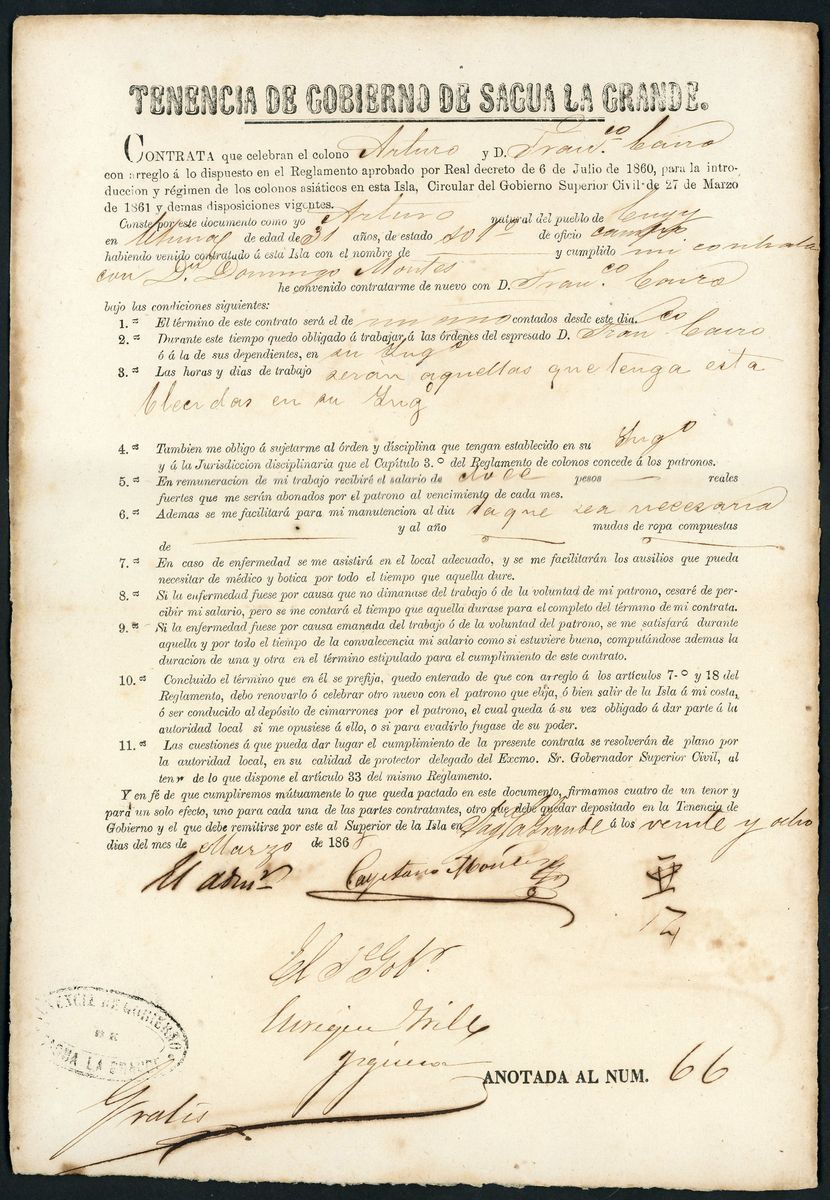 TENENCIA DE GOBIERNO DE SAGUA LA GRANDE.
CONTRATA que celebran el colono Arturo y D. Fran.co Cairo
con arreglo á lo dispuesto en el Reglamento aprobado por Real decreto de 6 de Julio de 1860, para la intro-
duccion y régimen de los colonos asiáticos en esta Isla, Circular del Gobierno Superior Civil de 27 de Marzo
de 1861 y demas disposiciones vigentes.
Conste por este documento como yo Arturo natural del pueblo de
en de edad de 31 años, de estado solt.o de oficio campo
habiendo venido contratado á esta Isla con el nombre de y cumplido mi contrata
con D.n Domingo Montes
he convenido contratarme de nuevo con D. Fran.co Cairo
bajo las condiciones siguientes:
1.ª El término de este contrato será el de un año contados desde este dia.
2.ª Durante este tiempo quedo obligado á trabajar á las órdenes del espresado D. Fran.co Cairo
ó á la de sus dependientes, en su Ing.o
3.ª Las horas y dias de trabajo seran aquellas que tenga esta
blecidas en su Ing.o
4.ª Tambien me obligo á sujetarme al órden y disciplina que tengan establecido en su Ing.o
y á la Jurisdiccion disciplinaria que el Capítulo 3.º del Reglamento de colonos concede á los patronos.
5.ª En remuneracion de mi trabajo recibiré el salario de doce pesos — reales
fuertes que me serán abonados por el patrono al vencimiento de cada mes.
6.ª Ademas se me facilitará para mi manutencion al dia la que sea necesaria
y al año mudas de ropa compuestas
de
7.ª En caso de enfermedad se me asistirá en el local adecuado, y se me facilitarán los ausilios que pueda
necesitar de médico y botica por todo el tiempo que aquella dure.
8.ª Si la enfermedad fuese por causa que no dimanase del trabajo ó de la voluntad de mi patrono, cesaré de per-
cibir mi salario, pero se me contará el tiempo que aquella durase para el completo del término de mi contrata.
9.ª Si la enfermedad fuese por causa emanada del trabajo ó de la voluntad del patrono, se me satisfará durante
aquella y por todo el tiempo de la convalecencia mi salario como si estuviere bueno, computándose ademas la
duracion de una y otra en el término estipulado para el cumplimiento de este contrato.
10.ª Concluido el término que en él se prefija, quedo enterado de que con arreglo á los artículos 7.º y 18 del
Reglamento, debo renovarlo ó celebrar otro nuevo con el patrono que elija, ó bien salir de la Isla á mi costa,
ó ser conducido al depósito de cimarrones por el patrono, el cual queda á su vez obligado á dar parte á la
autoridad local si me opusiese á ello, o si para evadirlo fugase de su poder.
11.ª Las cuestiones á que pueda dar lugar el cumplimiento de la presente contrata se resolverán de plano por
la autoridad local, en su calidad de protector delegado del Excmo. Sr. Gobernador Superior Civil, al
tenr de lo que dispone el artículo 33 del mismo Reglamento.
Y en fé de que cumpliremos mútuamente lo que queda pactado en este documento, firmamos cuatro de un tenor y
para un solo efecto, uno para cada una de las partes contratantes, otro que debe quedar depositado en la Tenencia de
Gobierno y el que debe remilirse por este al Superior de la Isla en Sagua la Grande á los veinte y ocho
dias del mes de Marzo de 186
Cayetano Montes
12
El T. Gob.r
Enrique Trillo
Figueroa
TENENCIA DE GOBIERNO
DE
SAGUA LA GRANDE
ANOTADA AL NUM. 66
Gratis